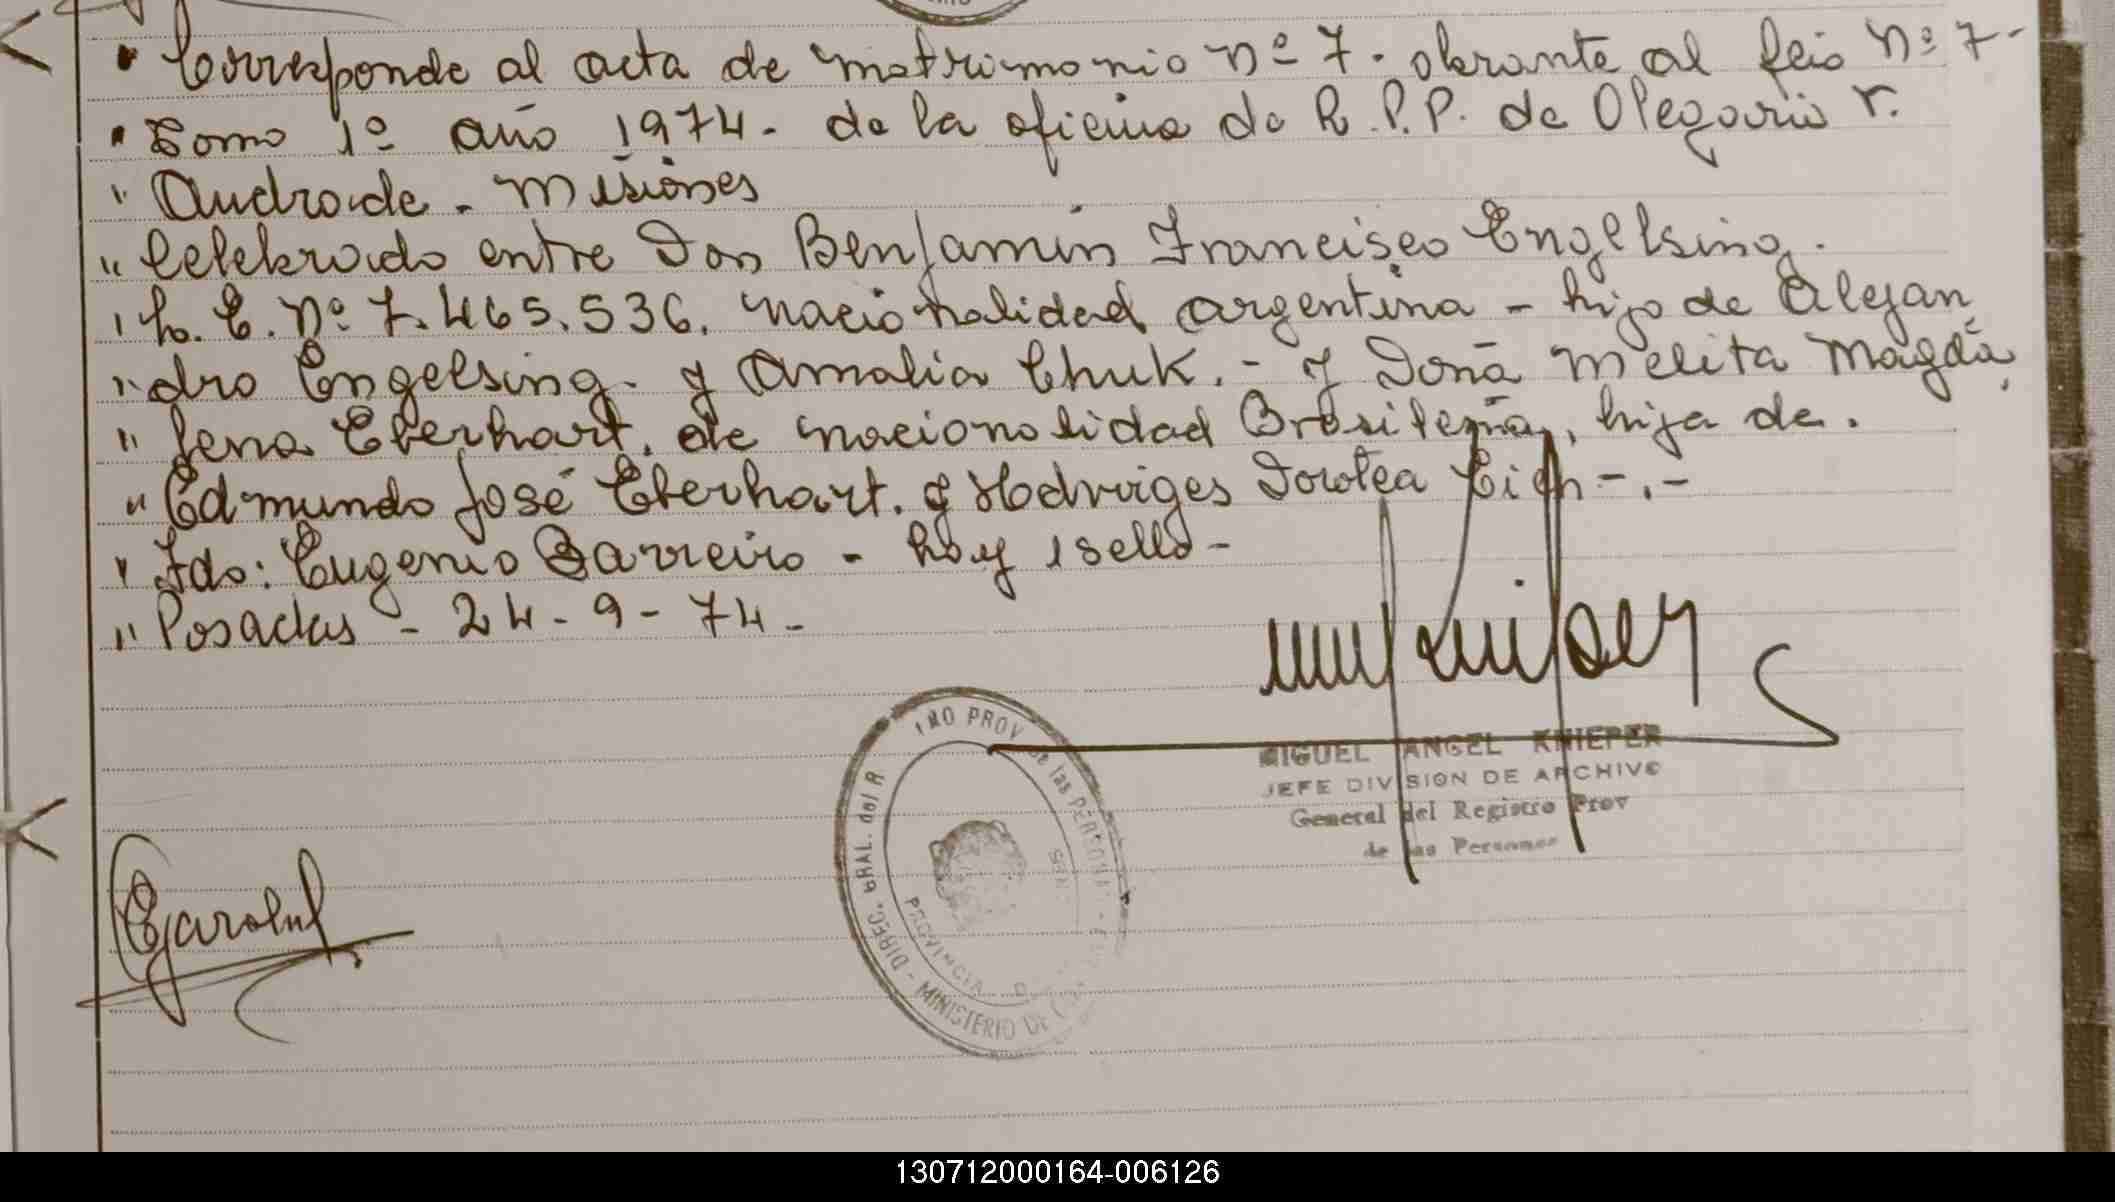 " Corresponde al acta de matrimonio nº 7. obrante al folio Nº 7-
" Tomo 1º año 1974- de la oficina de R.P.P. de Olegario V.
" Andrade. Misiones
" Celebrado entre Don Benjamin Francisco Engelsing.
" L. E. nº 7.465.536. nacionalidad argentina - hijo de Alejan
" dro Engelsing. y Amalia Chuk.- y Doña Melita Magda
" lena Eberhart. de nacionalidad Brasileña, hija de.
" Edmundo José Eberhart. y Hedwiges Dorotea Eich-.-
" Fdo: Eugenio Barreiro - hay 1 sello-
" Posadas - 24-9-74-
MIGUEL ANGEL KNIEPER
JEFE DIVISION DE ARCHIVO
General del Registro Prov
de las Personas
DIREC. GRAL. del R PROV de las PERSONAS
MINISTERIO DE
PROVINCIA D
130712000164-006126